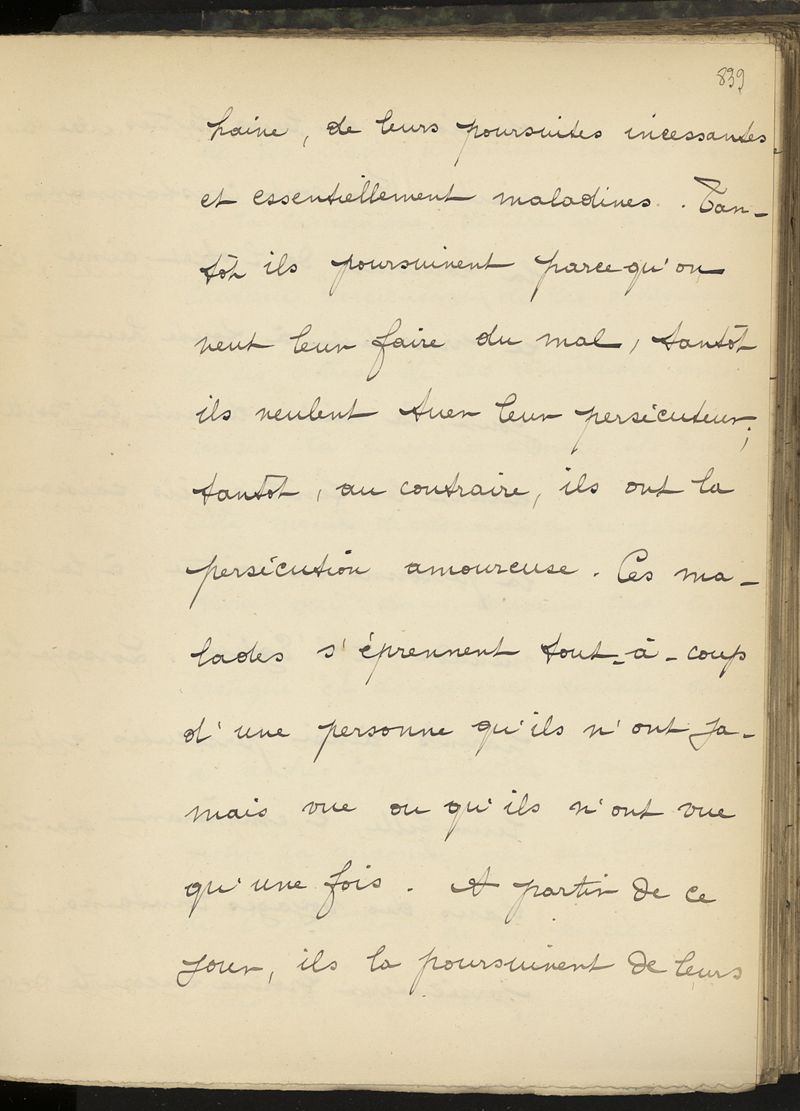 839
haine, de leurs poursuites incessantes
et essentiellement maladives. Tan-
tôt ils poursuivent parce qu'on
veut leur faire du mal, tantôt
ils veulent tuer leur persécuteur;
tantôt, au contraire, ils ont la
persécution amoureuse. Ces ma-
lades s'éprennent tout-à-coup
d'une personne qu'ils n'ont ja-
mais vue ou qu'ils n'ont vue
qu'une fois. A partir de ce
jour, ils la poursuivent de leurs